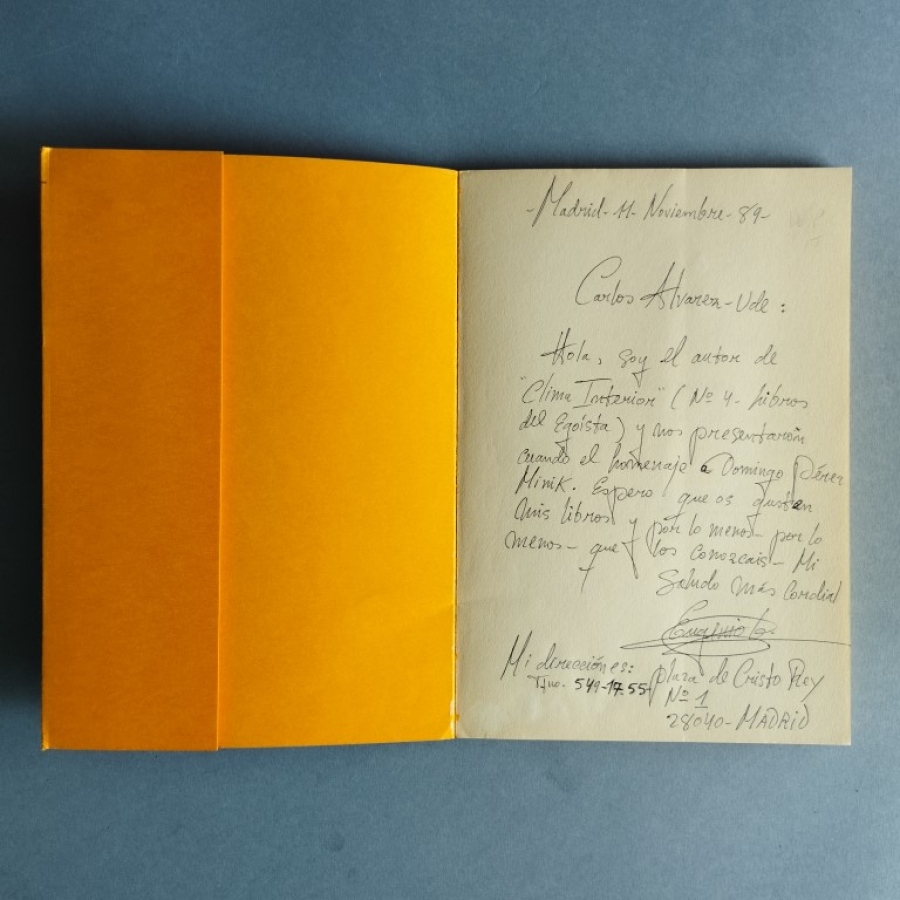 -Madrid- 11- Noviembre- 89-
Carlos Alvarez-Ude:
Hola, soy el autor de
"Clima Interior" (Nº 4- Libros
del Egoísta) y nos presentaron
cuando el homenaje a Domingo Pérez
Minik. Espero que os gusten
mis libros y por lo menos- por lo
menos- que los conozcais- Mi
Saludo más Cordial
Eugenio
Mi direcciónes: plaza de Cristo Rey
Tfno. 549-17.55- Nº 1
28040- MADRID